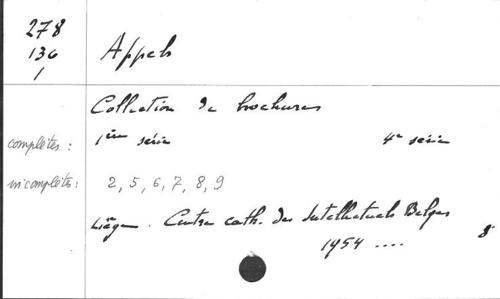 278
136
1
Appels
Collection de brochures
complètes : 1ère série 4e série
incomplètes : 2, 5, 6, 7, 8, 9
Liège. Centre cath. des Intellectuels Belges
1954 .... 8°